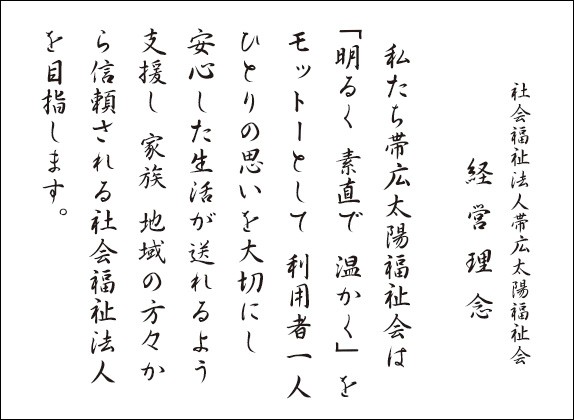 社会福祉法人帯広太陽福祉会
経営理念
私たち帯広太陽福祉会は
「明るく 素直で 温かく」を
モットーとして 利用者一人
ひとりの思いを大切にし
安心した生活が送れるよう
支援し 家族 地域の方々か
ら信頼される社会福祉法人
を目指します。